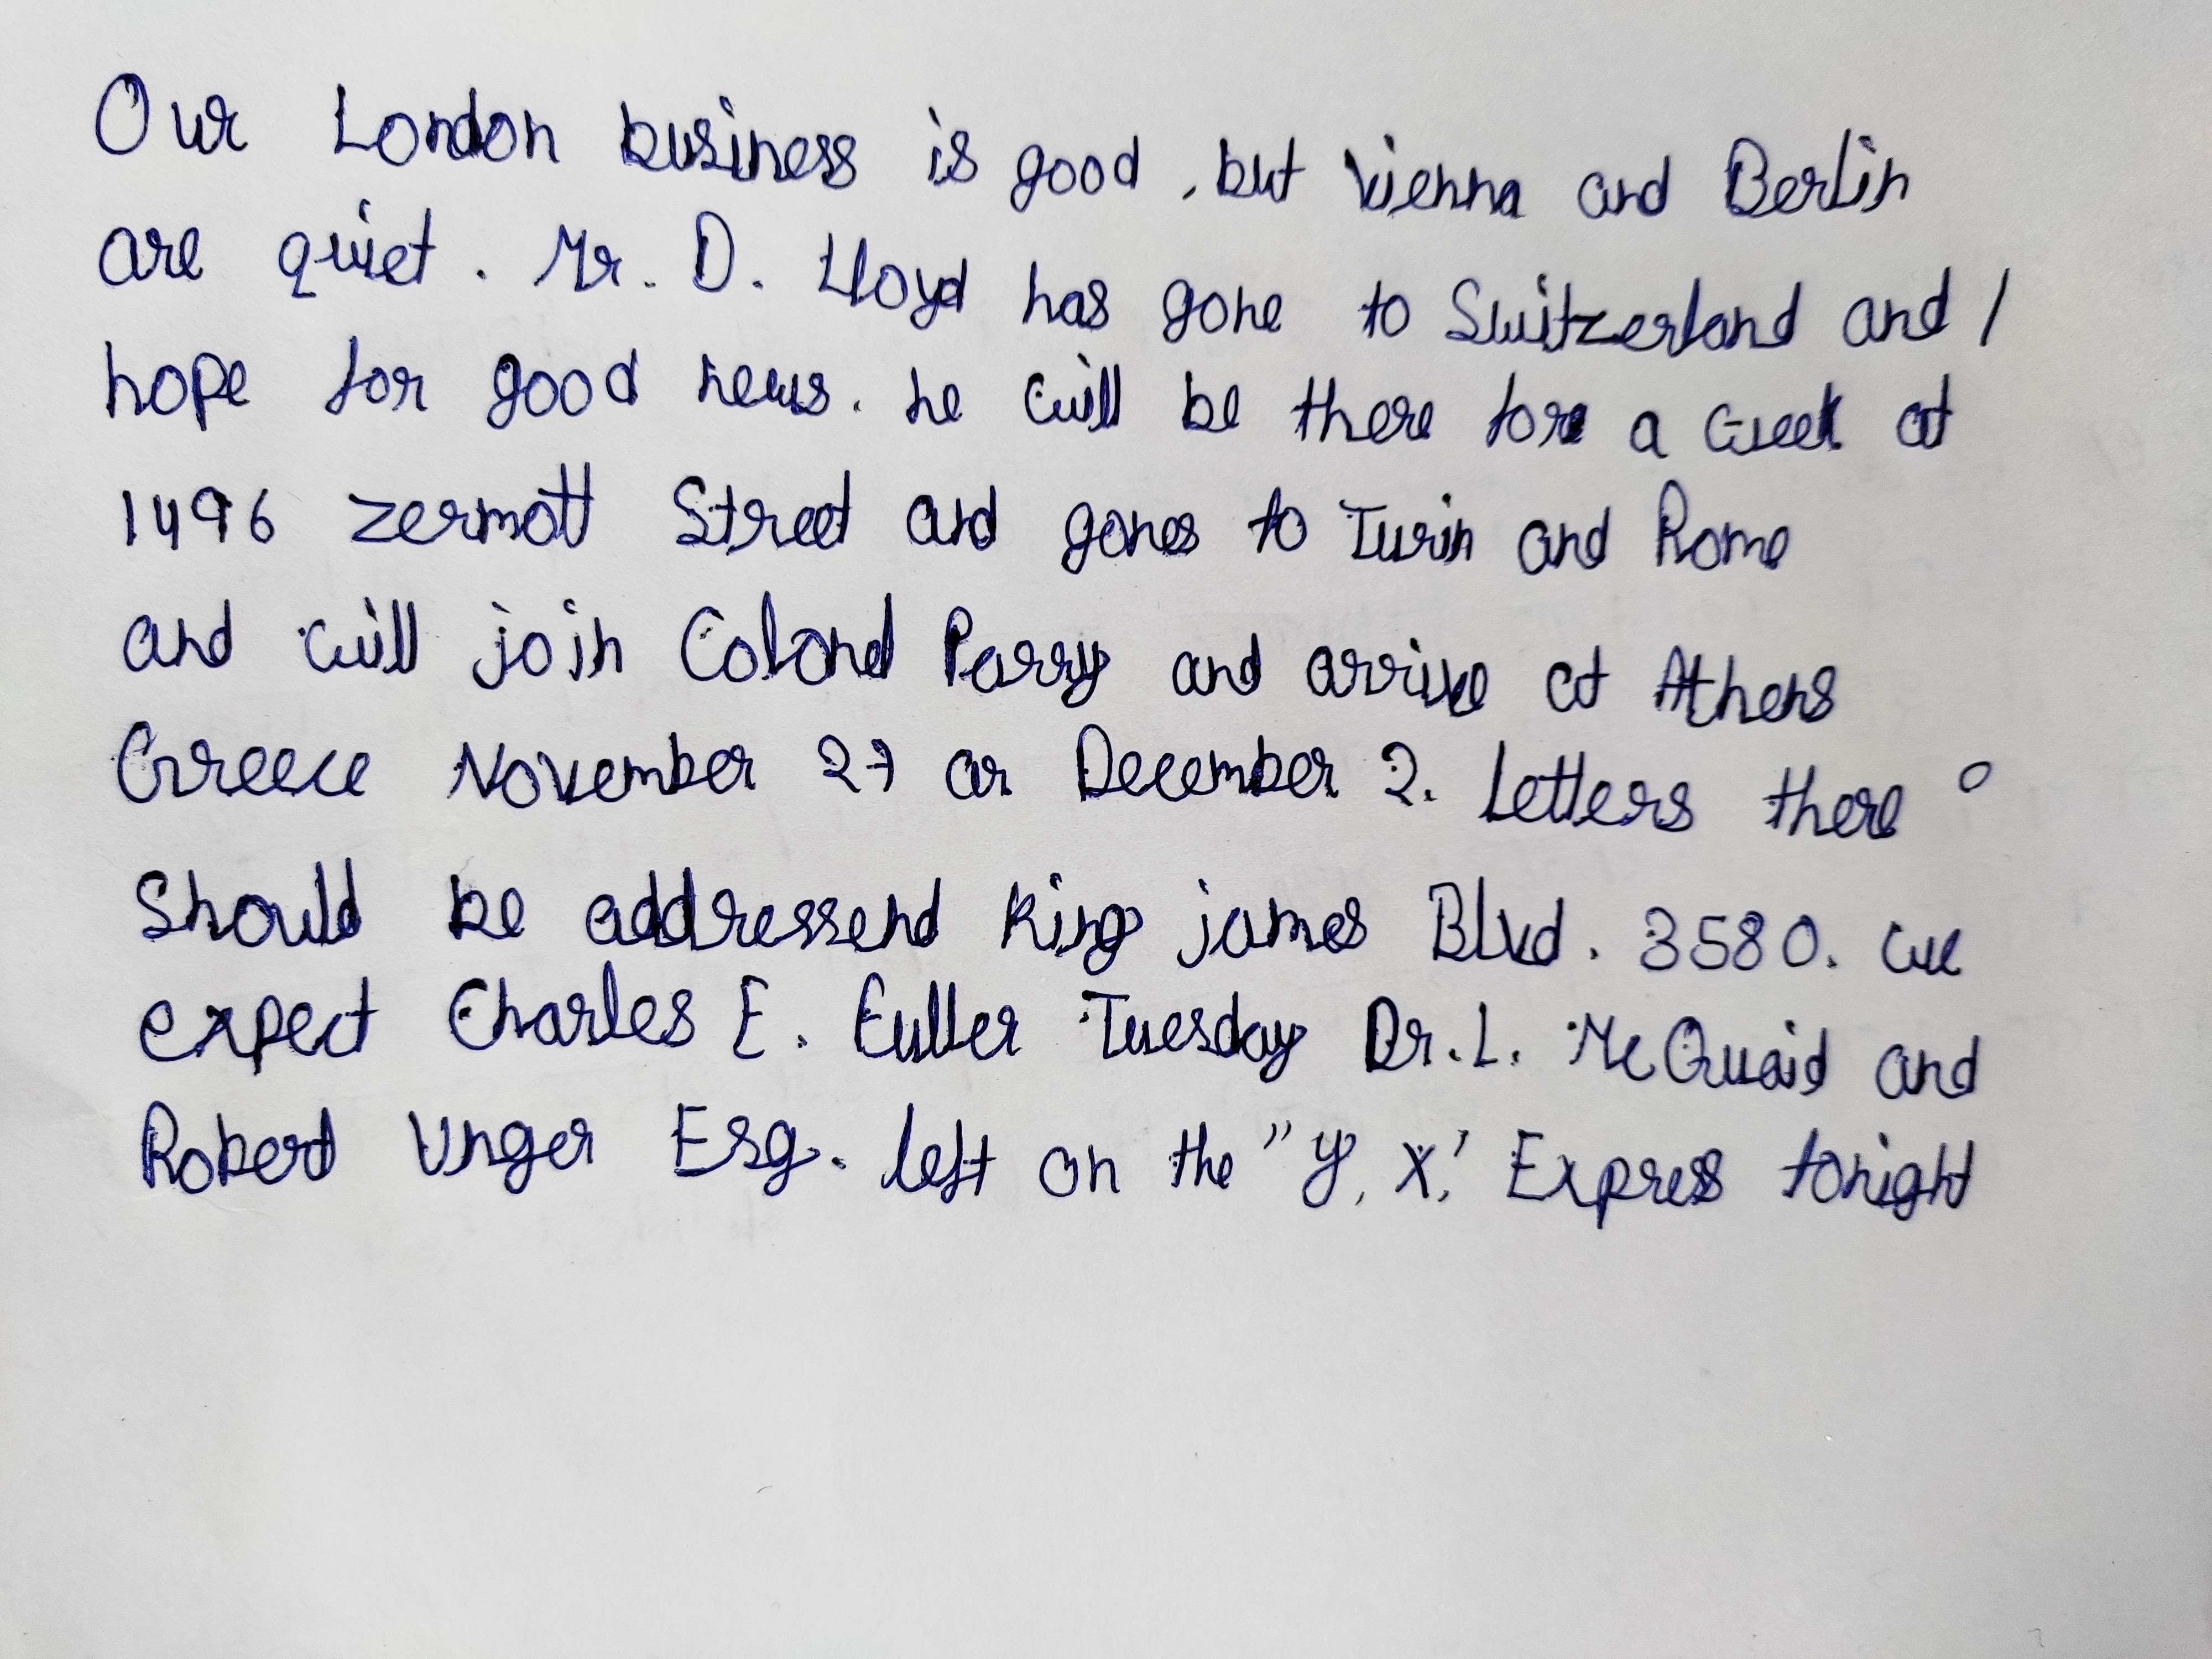 Our London business is good, but Vienna and Berlin
are quiet. Mr. D. Lloyd has gone to Switzerland and I
hope for good news. he will be there for a week at
1496 zermott Street and gones to Turin and Rome
and will join Colond Parry and arrive at Athens
Greece November 27 or December 2. Letters there
Should be addressend King james Blvd. 3580. we
expect Charles E. Fuller Tuesday Dr. L. McQuaid and
Robert Unger Esq. left on the "Y, X," Express tonight